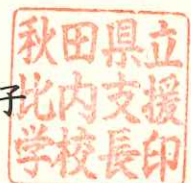 子
秋田県立
比内支援
学校長印